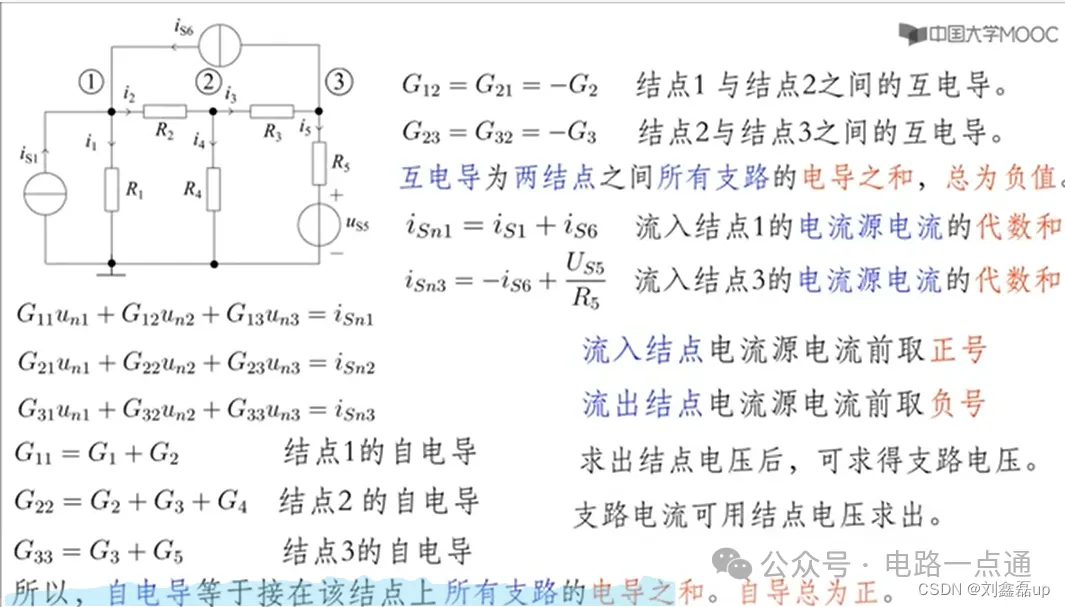 中国大学MOOC
iS6
① ② ③
i2 i3
R2 R3
iS1 i1 i4 i5
R1 R4 R5
+
uS5
−
G12 = G21 = −G2 结点1 与结点2之间的互电导。
G23 = G32 = −G3 结点2与结点3之间的互电导。
互电导为两结点之间所有支路的电导之和，总为负值。
iSn1 = iS1 + iS6 流入结点1的电流源电流的代数和
iSn3 = −iS6 + US5/R5 流入结点3的电流源电流的代数和
G11un1 + G12un2 + G13un3 = iSn1
G21un1 + G22un2 + G23un3 = iSn2
G31un1 + G32un2 + G33un3 = iSn3
流入结点电流源电流前取正号
流出结点电流源电流前取负号
G11 = G1 + G2 结点1的自电导
G22 = G2 + G3 + G4 结点2 的自电导
G33 = G3 + G5 结点3的自电导
求出结点电压后，可求得支路电压。
支路电流可用结点电压求出。
所以，自电导等于接在该结点上所有支路的电导之和。自导总为正。
公众号 · 电路一点通
CSDN @刘鑫磊up